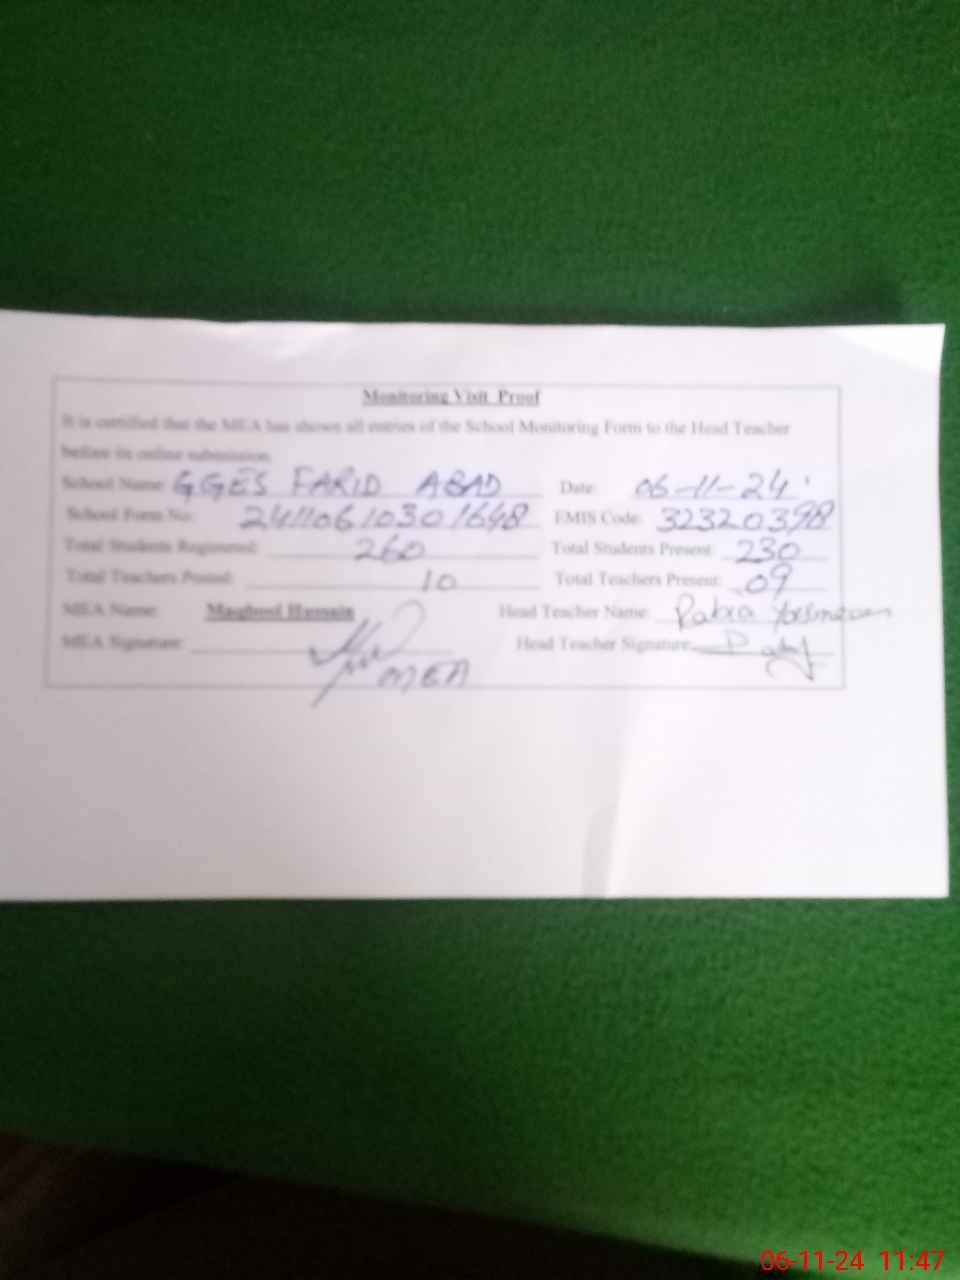 Monitoring Visit Proof
It is certified that the MEA has shown all entries of the School Monitoring Form to the Head Teacher
before its online submission.
School Name: GGES FARID ABAD Date: 06-11-24
School Form No: 24110610301648 EMIS Code: 32320398
Total Students Registered: 260 Total Students Present: 230
Total Teachers Posted: 10 Total Teachers Present: 09
MEA Name: Maqbool Hussain Head Teacher Name: Rabia Yasmeen
MEA Signature: MEA Head Teacher Signature:
06-11-24 11:47